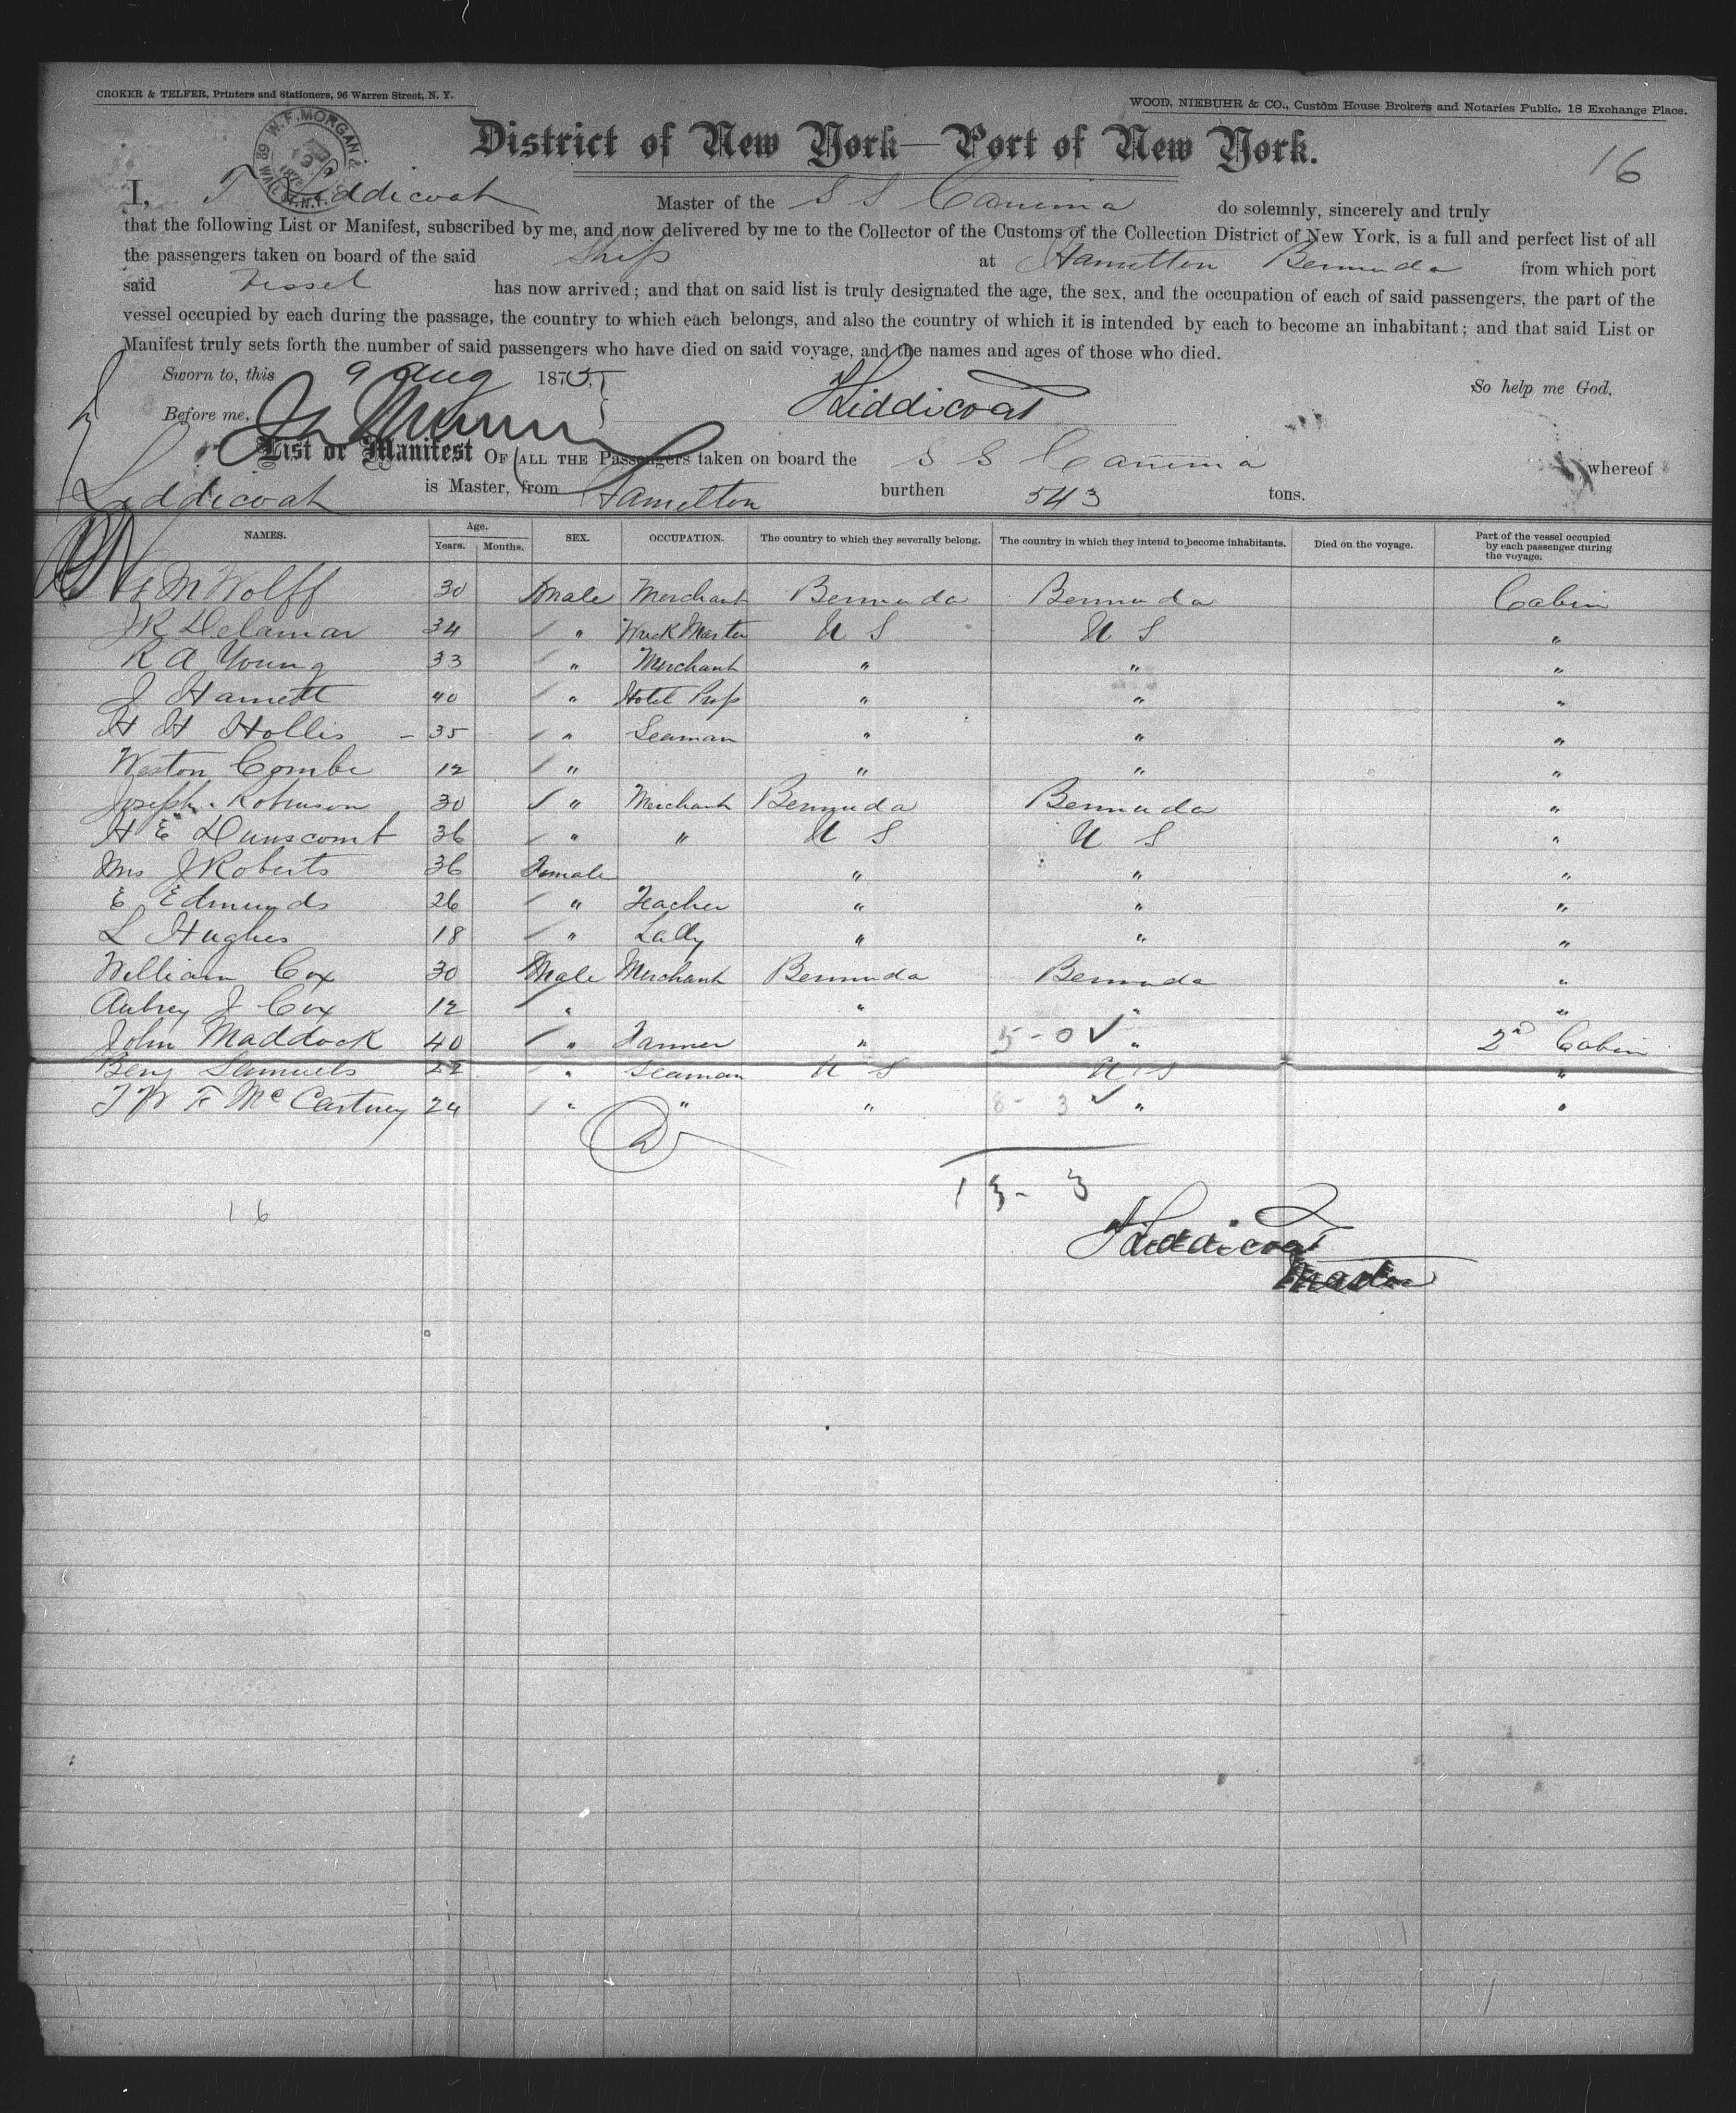 CROKER & TELFER, Printers and Stationers, 96 Warren Street, N. Y.
WOOD, NIEBUHR & CO., Custom House Brokers and Notaries Public, 18 Exchange Place.
W. F. MORGAN &
89 WALL ST. N.Y.
District of New York—Port of New York.
16
I, T Liddicoat Master of the S S Canima do solemnly, sincerely and truly
that the following List or Manifest, subscribed by me, and now delivered by me to the Collector of the Customs of the Collection District of New York, is a full and perfect list of all
the passengers taken on board of the said Ship at Hamilton Bermuda from which port
said Vessel has now arrived; and that on said list is truly designated the age, the sex, and the occupation of each of said passengers, the part of the
vessel occupied by each during the passage, the country to which each belongs, and also the country of which it is intended by each to become an inhabitant; and that said List or
Manifest truly sets forth the number of said passengers who have died on said voyage, and the names and ages of those who died.
Sworn to, this 9 Aug 1875, So help me God,
Before me, T Liddicoat
List or Manifest OF ALL THE Passengers taken on board the S S Canima whereof
Liddicoat is Master, from Hamilton burthen 543 tons.
NAMES. Age. Years. Months. SEX. OCCUPATION. The country to which they severally belong. The country in which they intend to become inhabitants. Died on the voyage. Part of the vessel occupied by each passenger during the voyage.
M Wolff 30 Male Merchant Bermuda Bermuda Cabin
J R Delamar 34 " Wreck Master U S U S "
R A Young 33 " Merchant " " "
J Harnett 40 " Hotel Prop " " "
H H Hollis - 35 " Seaman " " "
Weston Combe 12 " " " "
Joseph Robinson 30 " Merchant Bermuda Bermuda "
H E Dunscomb 36 " " U S U S "
Mrs J Roberts 36 Female " " "
E Edmunds 26 " Teacher " " "
L Hughes 18 " Lady " " "
William Cox 30 Male Merchant Bermuda Bermuda "
Aubrey J Cox 12 " " " "
John Maddock 40 " Farmer " 5-0 ✓ " 2nd Cabin
Benj Samuels 22 " Seaman U S U S "
J W F McCartney 24 " " " 8-3 ✓ " "
13-3
16
T Liddicoat
Master